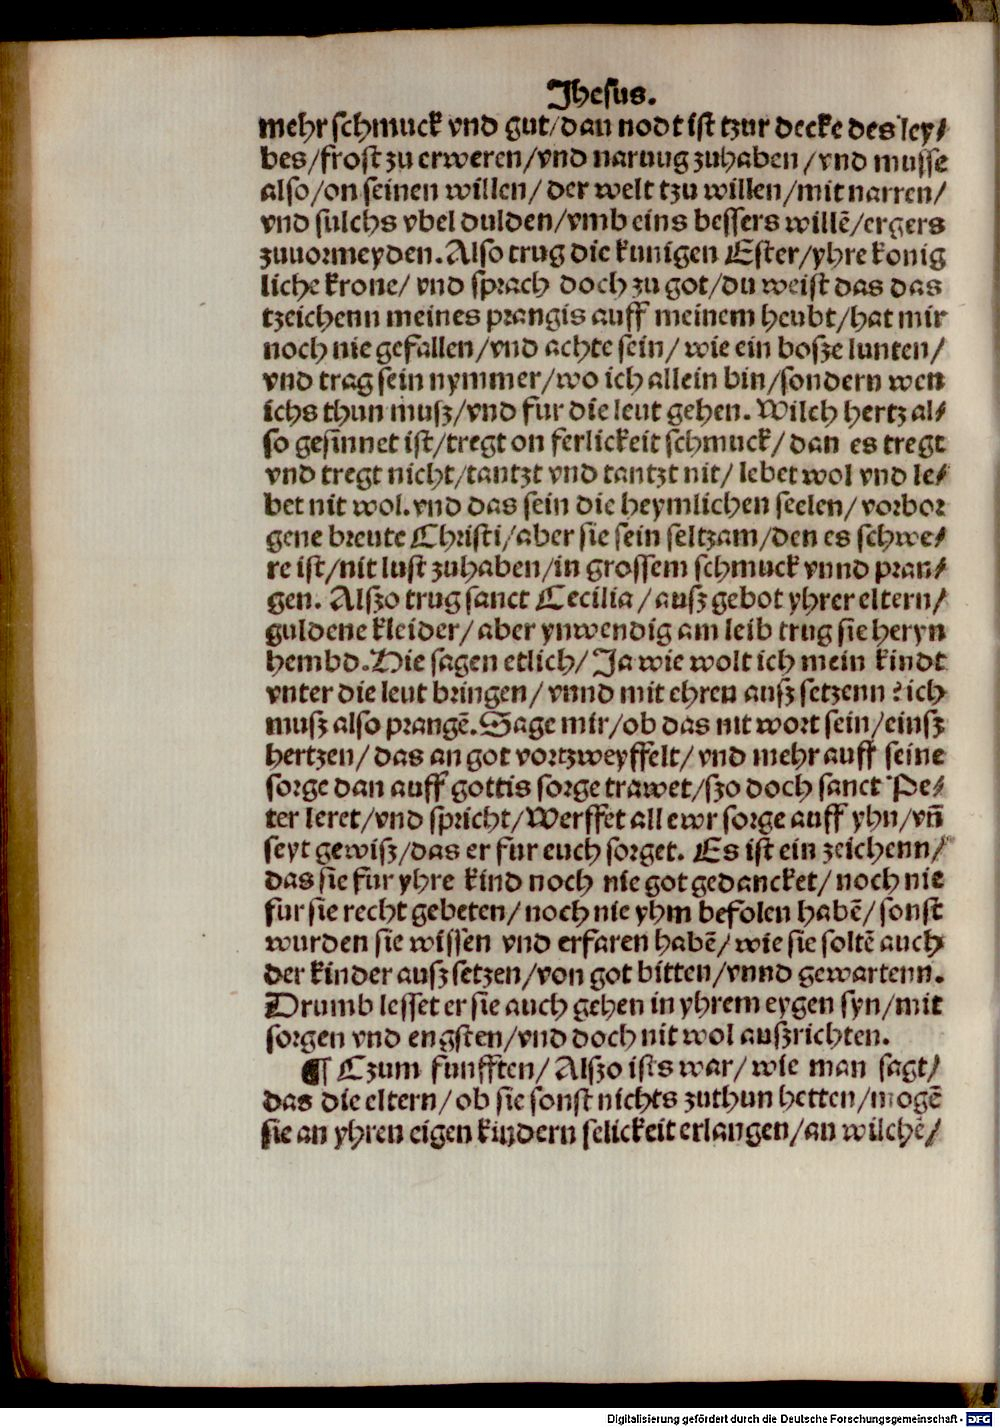 Jhesus.
mehr schmuck vnd gut/dan nodt ist tzur decke des ley/
bes/frost zu erweren/vnd narung zuhaben/vnd musse
also/on seinen willen/ der welt tzu willen/mit narren/
vnd sulchs vbel dulden/vmb eins bessers willē/ergers
zuuormeyden. Also trug die kunigen Ester/yhre konig
liche krone/ vnd sprach doch zu got/du weist das das
tzeichenn meines prangis auff meinem heubt/hat mir
noch nie gefallen/vnd achte sein/ wie ein bosze lunten/
vnd trag sein nymmer/wo ich allein bin/sondern wen
ichs thun musz/vnd fur die leut gehen. Wilch hertz al/
so gesinnet ist/tregt on ferlickeit schmuck/ dan es tregt
vnd tregt nicht/tantzt vnd tantzt nit/ lebet wol vnd le/
bet nit wol. vnd das sein die heymlichen seelen/ vorbor
gene breute Christi/aber sie sein seltzam/den es schwe/
re ist/nit lust zuhaben/in grossem schmuck vnnd pran/
gen. Alszo trug sanct Cecilia/ ausz gebot yhrer eltern/
guldene kleider/ aber ynwendig am leib trug sie heryn
hembd. Hie sagen etlich/ Ja wie wolt ich mein kindt
vnter die leut bringen/ vnnd mit ehren ausz setzenn? ich
musz also prangē. Sage mir/ob das nit wort sein/einsz
hertzen/ das an got vortzweyffelt/ vnd mehr auff seine
sorge dan auff gottis sorge trawet/szo doch sanct Pe/
ter leret/vnd spricht/Werffet all ewr sorge auff yhn/vñ
seyt gewisz/das er fur euch sorget. Es ist ein zeichenn/
das sie fur yhre kind noch nie got gedancket/ noch nie
fur sie recht gebeten/ noch nie yhm befolen habē/ sonst
wurden sie wissen vnd erfaren habē/ wie sie soltē auch
der kinder ausz setzen/von got bitten/vnnd gewartenn.
Drumb lesset er sie auch gehen in yhrem eygen syn/mit
sorgen vnd engsten/vnd doch nit wol auszrichten.
¶ Czum funfften/ Alszo ists war/ wie man sagt/
das die eltern/ob sie sonst nichts zuthun hetten/mogē
sie an yhren eigen kindern selickeit erlangen/an wilchē/
Digitalisierung gefördert durch die Deutsche Forschungsgemeinschaft - DFG